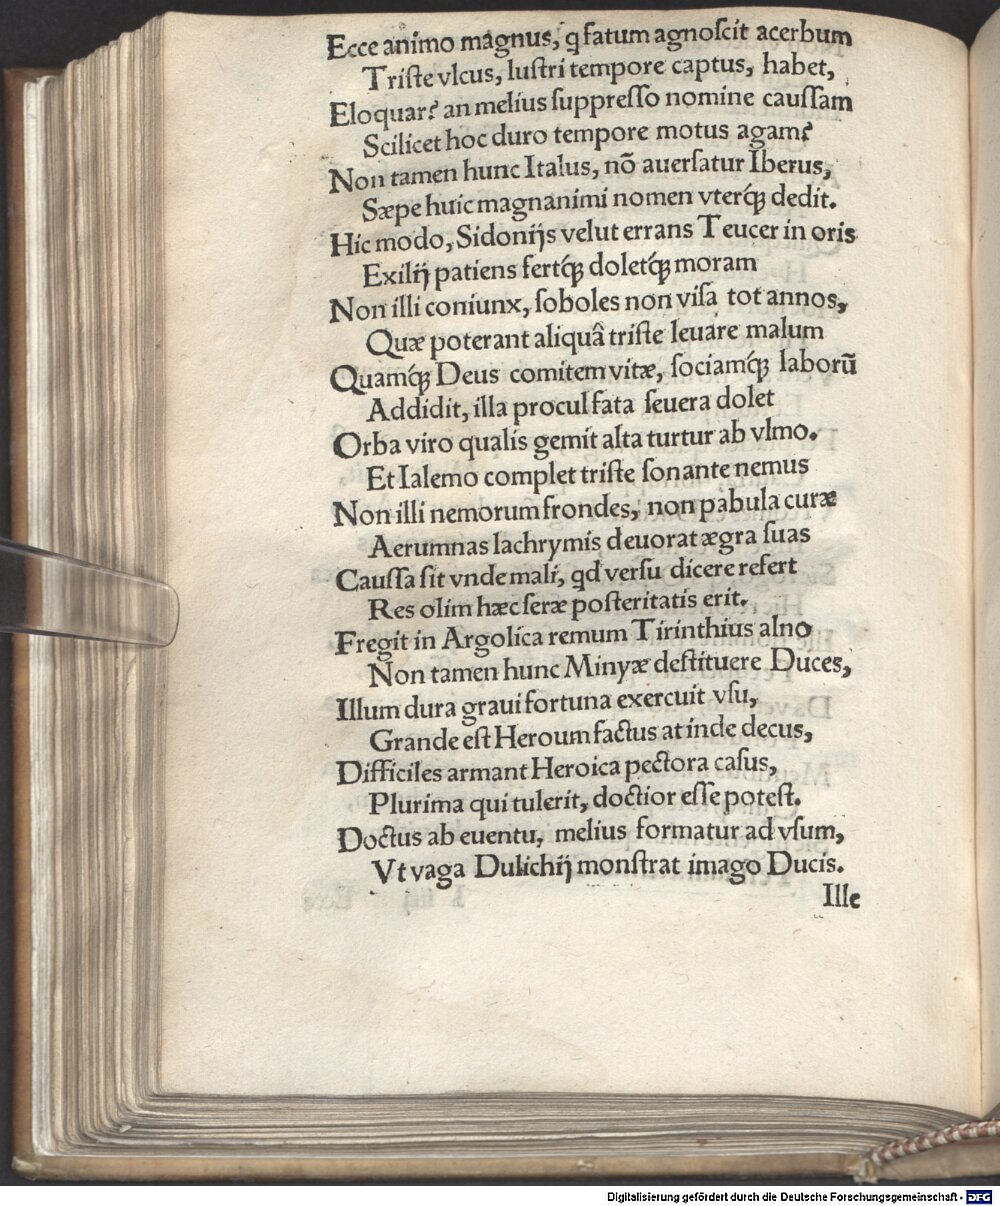 Ecce animo magnus, q fatum agnoſcit acerbum
Triſte vlcus, luſtri tempore captus, habet,
Eloquar? an melius ſuppreſſo nomine cauſſam
Scilicet hoc duro tempore motus agam?
Non tamen hunc Italus, nõ auerſatur Iberus,
Sæpe huic magnanimi nomen vterqꝫ dedit.
Hic modo, Sidonijs velut errans Teucer in oris
Exilij patiens fertqꝫ doletqꝫ moram
Non illi coniunx, ſoboles non viſa tot annos,
Quæ poterant aliquâ triſte leuare malum
Quamqꝫ Deus comitem vitæ, ſociamqꝫ laborũ
Addidit, illa procul fata ſeuera dolet
Orba viro qualis gemit alta turtur ab vlmo.
Et Ialemo complet triſte ſonante nemus
Non illi nemorum frondes, non pabula curæ
Aerumnas lachrymis deuorat ægra ſuas
Cauſſa ſit vnde mali, qd verſu dicere refert
Res olim hæc ſeræ poſteritatis erit.
Fregit in Argolica remum Tirinthius alno
Non tamen hunc Minyæ deſtituere Duces,
Illum dura graui fortuna exercuit vſu,
Grande eſt Heroum factus at inde decus,
Difficiles armant Heroica pectora caſus,
Plurima qui tulerit, doctior eſſe poteſt.
Doctus ab euentu, melius formatur ad vſum,
Vt vaga Dulichij monſtrat imago Ducis.
Ille
Digitalisierung gefördert durch die Deutsche Forschungsgemeinschaft - DFG